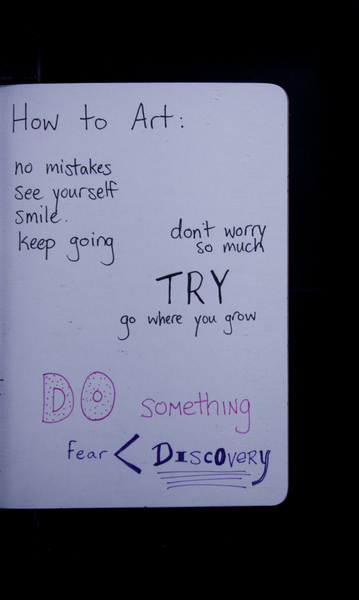 How to Art:
no mistakes
see yourself
smile.
keep going
don't worry
so much
TRY
go where you grow
DO something
Fear < Discovery